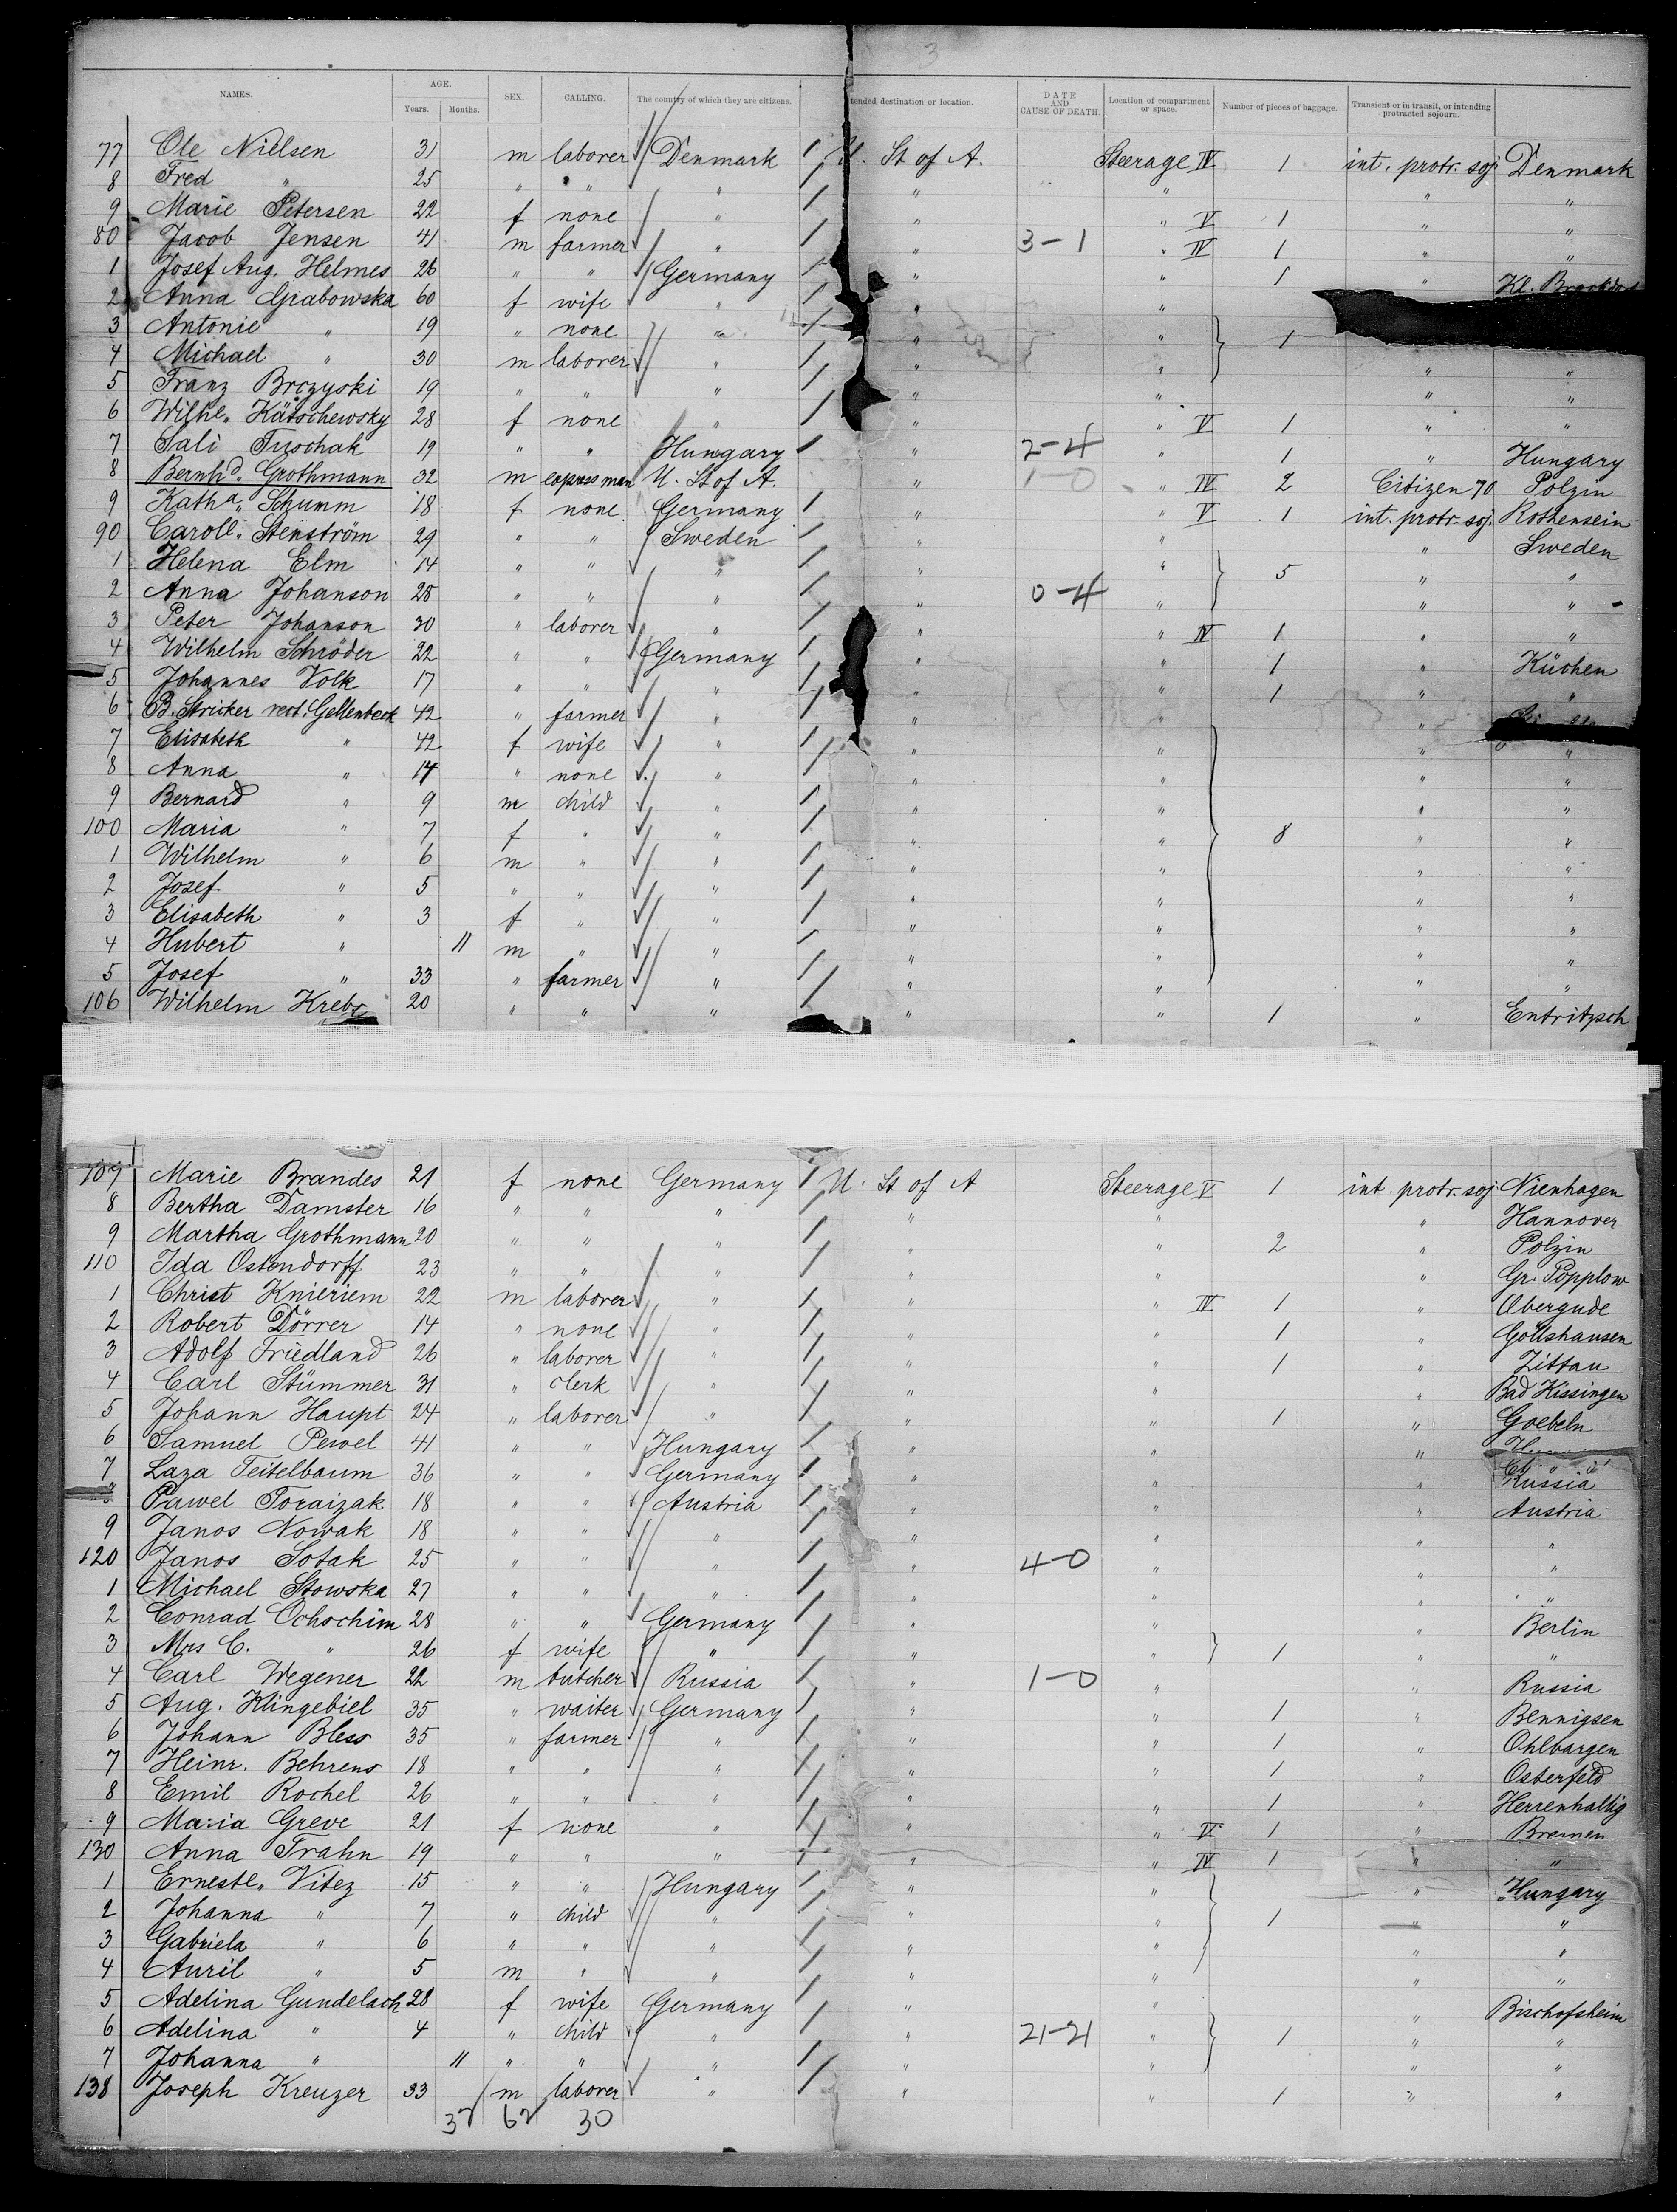 3
NAMES. AGE. Years. Months. SEX. CALLING. The country of which they are citizens. tended destination or location. DATE AND CAUSE OF DEATH. Location of compartment or space. Number of pieces of baggage. Transient or in transit, or intending protracted sojourn.
77 Ole Nielsen 31 m laborer Denmark U. St of A. Steerage IV 1 int. protr. soj Denmark
8 Fred " 25 " " " " " " "
9 Marie Petersen 22 f none " " " V 1 " "
80 Jacob Jensen 41 m farmer " " 3-1 " IV 1 " "
1 Josef Aug. Helmes 26 " " Germany " " 1 "
2 Anna Grabowska 60 f wife " " "
3 Antonie " 19 " none " " " 1
4 Michael " 30 m laborer " " " " "
5 Franz Brczyski 19 " " " " " " "
6 Wilhe. Kätschewsky 28 f none " " " V 1 " "
7 Sali Tuschak 19 " " Hungary " 2-4 " 1 " Hungary
8 Bernhd. Grothmann 32 m expressman U. St of A. " 1-0 " IV 2 Citizen 70 Polzin
9 Katha. Schumm 18 f none Germany " " V 1 int. protr. soj. Rothensein
90 Caroll. Stenström 29 " " Sweden " " " Sweden
1 Helena Elm 14 " " " " " 5 " "
2 Anna Johanson 28 " " " " 0-4 " " "
3 Peter Johanson 30 " laborer " " " IV 1 " "
4 Wilhelm Schröder 22 " " Germany " " 1 " Küchen
5 Johannes Volk 17 " " " " " 1 " "
6 B. Stricker rect. Gellenbeck 42 " farmer " " " "
7 Elisabeth " 42 f wife " " " " "
8 Anna " 14 " none " " " " "
9 Bernard " 9 m child " " " " "
100 Maria " 7 f " " " " 8 " "
1 Wilhelm " 6 m " " " " " "
2 Josef " 5 " " " " " " "
3 Elisabeth " 3 f " " " " " "
4 Hubert " 11 m " " " " " "
5 Josef " 33 " farmer " " " " "
106 Wilhelm Krebs 20 " " " " " 1 " Entritzsch
107 Marie Brandes 21 f none Germany U. St of A Steerage V 1 int. protr. soj. Nienhagen
8 Bertha Damster 16 " " " " " " Hannover
9 Martha Grothmann 20 " " " " " 2 " Polzin
110 Ida Ostendorff 23 " " " " " " Gr. Popplow
1 Christ Knieriem 22 m laborer " " " IV 1 " Obergude
2 Robert Dörrer 14 " none " " " 1 " Göllshausen
3 Adolf Friedland 26 " laborer " " " 1 " Zittau
4 Carl Stümmer 31 " clerk " " " " Bad Kissingen
5 Johann Haupt 24 " laborer " " " 1 " Goebeln
6 Samuel Pewel 41 " " Hungary " " "
7 Laza Teitelbaum 36 " " Germany " " " Russia
Pawel Toraizak 18 " " Austria " " " Austria
9 Janos Nowak 18 " " " " " " "
120 Janos Sotak 25 " " " " 4-0 " " "
1 Michael Stowska 27 " " " " " " "
2 Conrad Ochschim 28 " " Germany " " " Berlin
3 Mrs C. " 26 f wife " " " 1 " "
4 Carl Wegener 22 m butcher Russia " 1-0 " " Russia
5 Aug. Klingebiel 35 " waiter Germany " " 1 " Bennigsen
6 Johann Bless 35 " farmer " " " 1 " Ohlbargen
7 Heinr. Behrens 18 " " " " " 1 " Osterfeld
8 Emil Rochel 26 " " " " " 1 " Herrenhallig
9 Maria Greve 21 f none " " " V 1 " Bremen
130 Anna Trahn 19 " " " " " IV 1 " "
1 Ernestl. Vitez 15 " " Hungary " " " Hungary
2 Johanna " 7 " child " " " 1 " "
3 Gabriela " 6 " " " " " " "
4 Auril " 5 m " " " " " "
5 Adelina Gundelach 28 f wife Germany " " " Bischofsheim
6 Adelina " 4 " child " " 21-21 " 1 " "
7 Johanna " 11 " " " " " " "
138 Joseph Kreuzer 33 m laborer " " " 1 " "
37 62 30